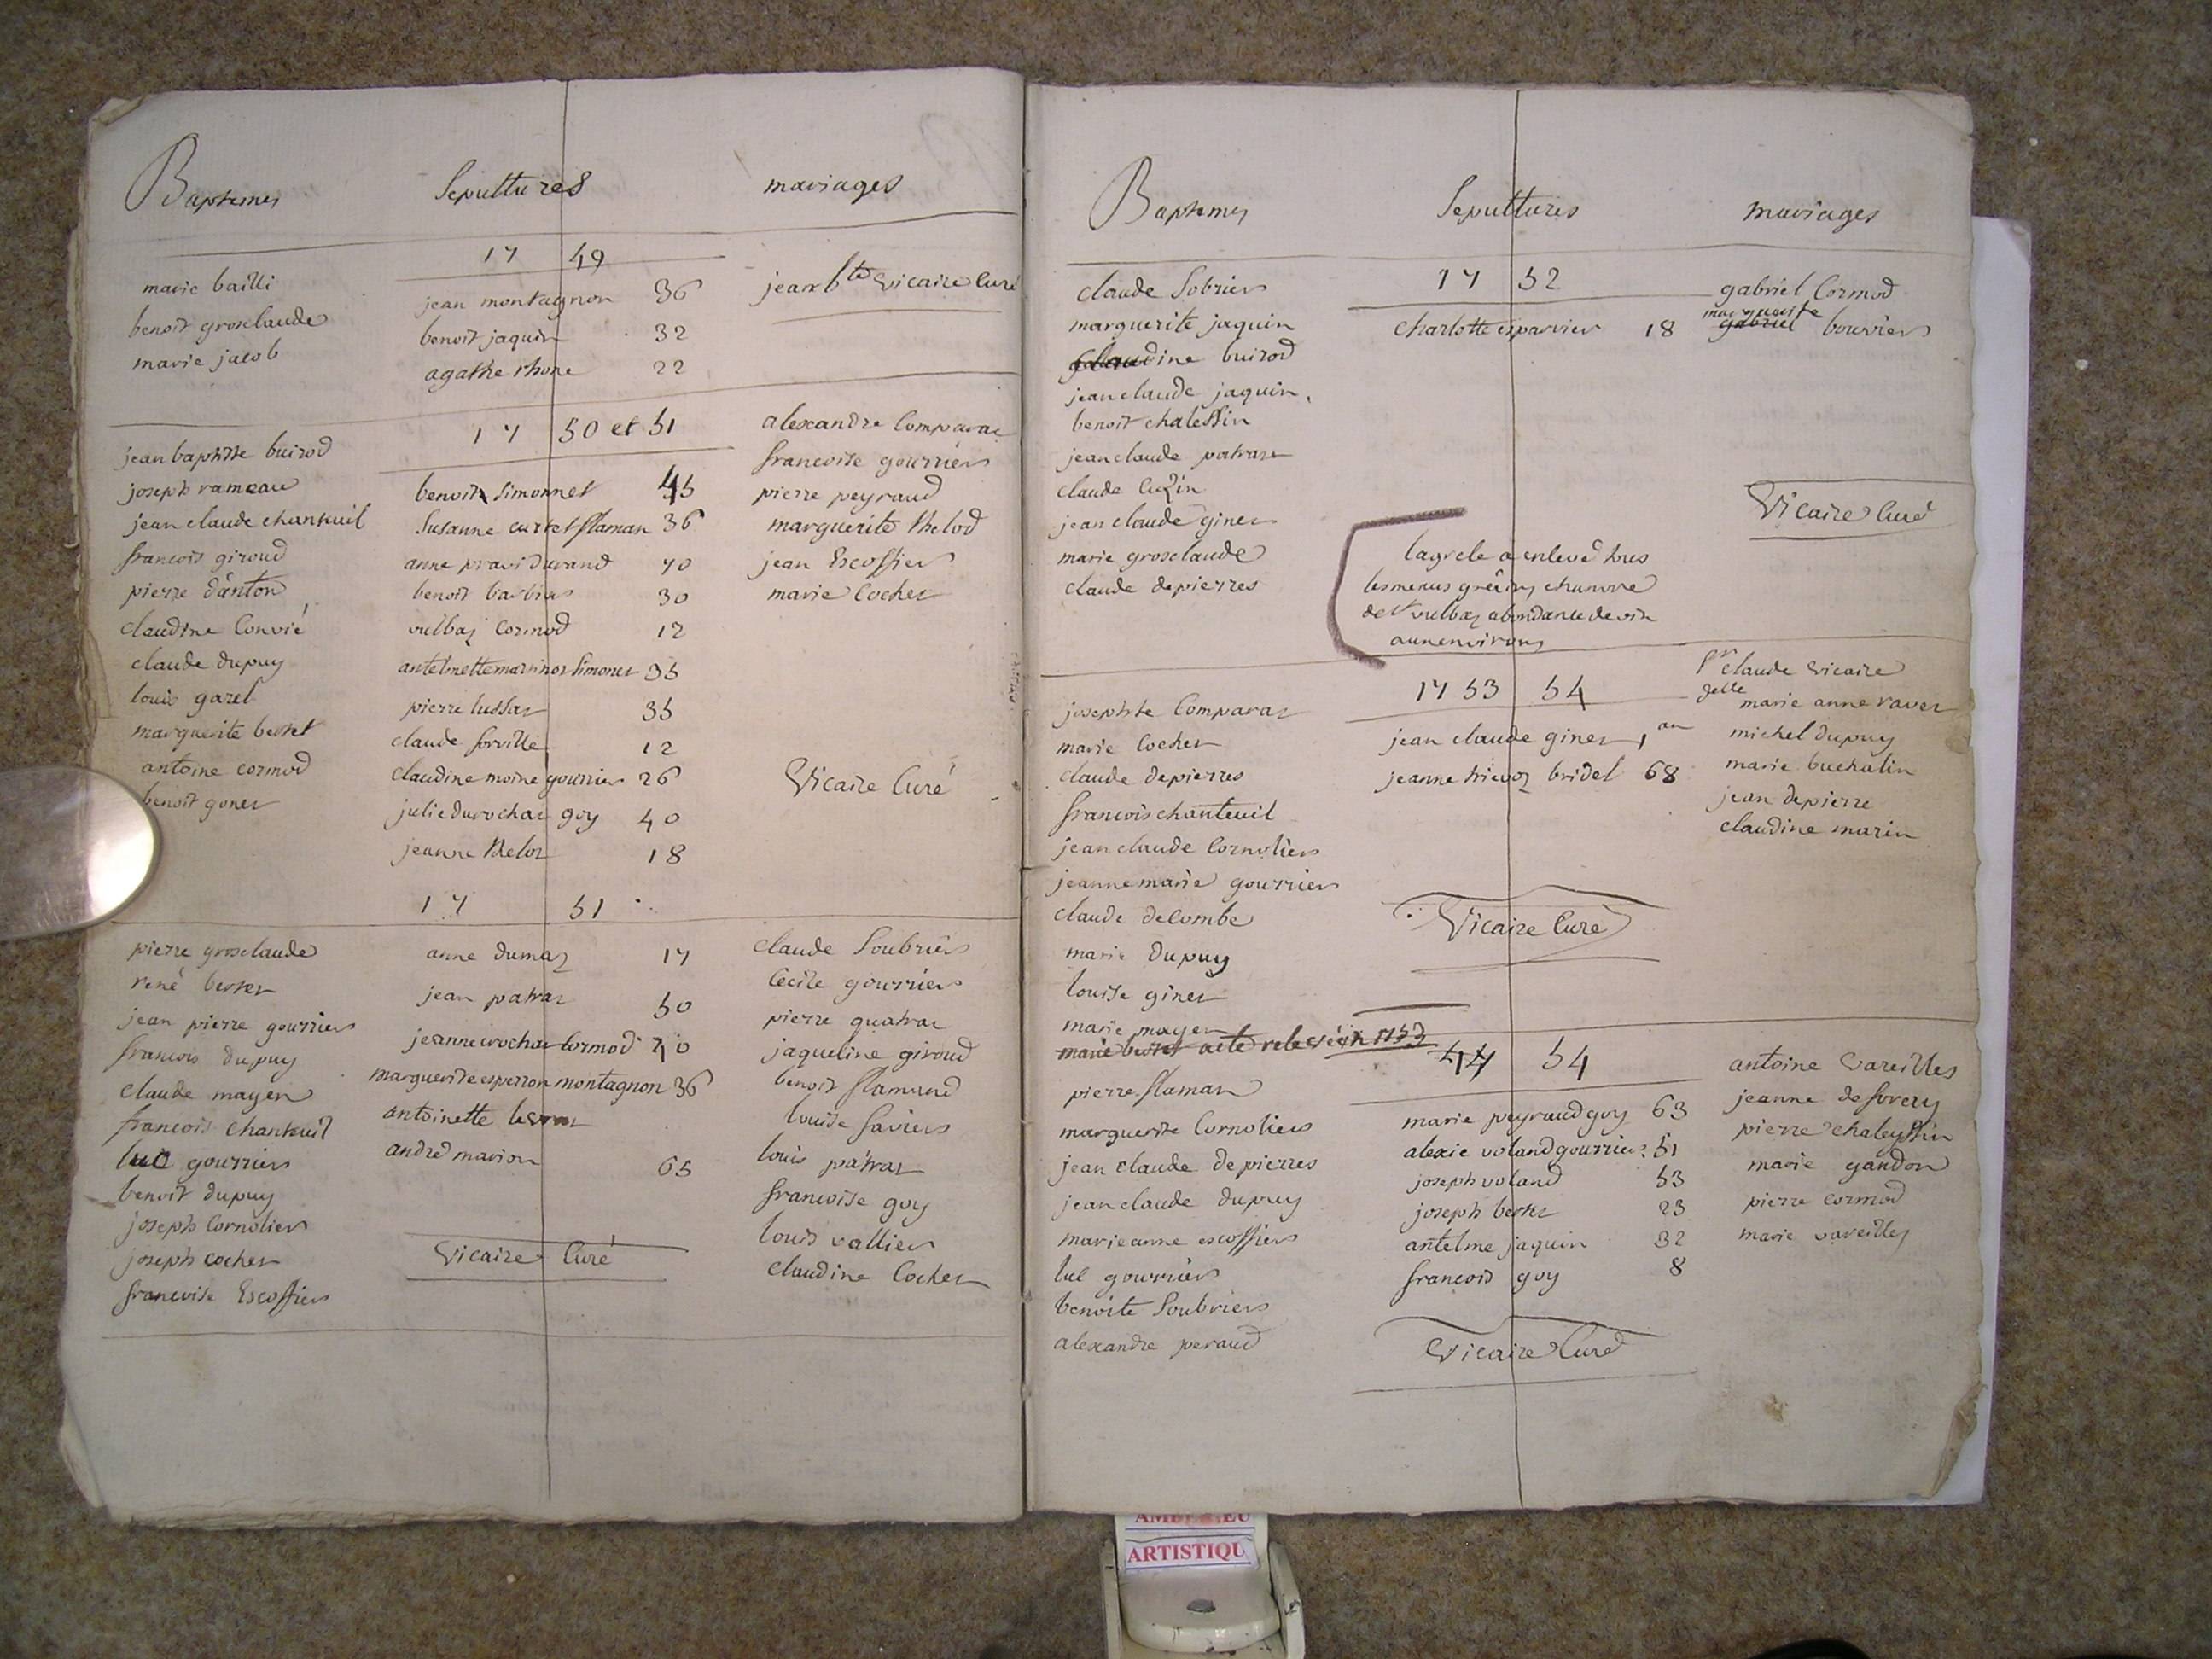 Baptemes
Sepultures
mariages
17 49
marie bailli
benoit groseclaude
marie jacob
jean montagnon 36
benoit jaquin 32
agathe rhone 22
jean bte Vicaire Curé
17 50 et 51
jean baptiste buirod
joseph rameau
jean claude chanteuil
francois giroud
pierre danton
claudine Convié
claude dupuy
louis garel
marguerite bertet
antoine cormod
benoit goner
benoit Simonnet 45
Susanne curtet flaman 36
anne pravi durand 70
benoit barbier 30
vulbaz Cormod 12
antelmette marinos Simonet 35
pierre lussaz 35
claude forville 12
claudine moine gourrier 26
julie durochaz goy 40
jeanne theloz 18
alexandre Comparaz
francoise gourrier
pierre peyraud
marguerite thelod
jean Escoffier
marie Cochet
Vicaire Curé
17 51
pierre groseclaude
rené bertet
jean pierre gourrier
francois dupuy
claude mayen
francois Chanteuil
luc gourrier
benoit dupuy
joseph Cornolier
joseph cochet
francoise Escoffier
anne dumaz 17
jean patraz 50
jeanne crochaz Cormod 70
marguerite esperron montagnon 36
antoinette
andré marion 65
Vicaire Curé
claude Soubrier
Cecile gourrier
pierre quatraz
jaqueline giroud
benoit flamand
louise Savier
louis patraz
francoise goy
louis vallier
claudine Cochet
Baptemes
Sepultures
mariages
17 52
claude Sobrier
marguerite jaquin
claudine buirod
jean claude jaquin
benoit chalessin
jean claude patraz
claude Cuzin
jean claude giner
marie groseclaude
claude depierres
charlotte esparvier 18
gabriel Cormod
marguerite
gabriel bouvier
Vicaire Curé
la grele a enlevé tous
les menus greins chanvre
de St vulbaz abondance de vin
aux environs
17 53 54
josephte Comparaz
marie Cochet
claude depierres
francois chanteuil
jean claude Cornolier
jeanne marie gourrier
claude decombe
marie dupuy
louise giner
marie mayen
marie bertet acte relevé en 1753
jean claude giner 1 an
jeanne trievoz bridel 68
Sr claude Vicaire
delle marie anne ravet
michel dupuy
marie buchalin
jean depierre
claudine marin
Vicaire Curé
17 54
pierre flaman
marguerite Cornolier
jean claude depierres
jean claude dupuy
marie anne escoffier
luc gourrier
benoite Soubrier
alexandre peraud
marie peyraud goy 63
alexie voland gourrier 51
joseph voland 53
joseph bertet 23
antelme jaquin 32
francois goy 8
Vicaire Curé
antoine Vareilles
jeanne deforery
pierre Chaleyssin
marie gandon
pierre cormod
marie vareilles
ARTISTIQU